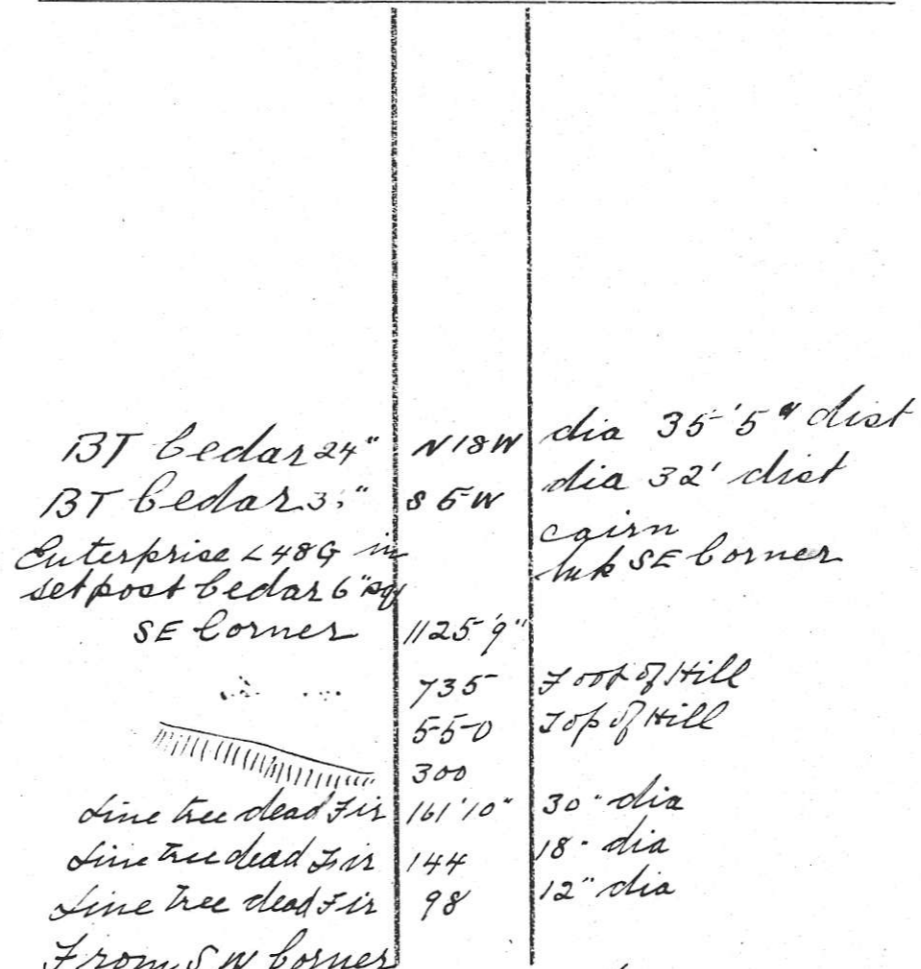 BT Cedar 24" N18W dia 35'5" dist
BT Cedar S5W dia 32' dist
Enterprise L48G in cairn
set post Cedar 6" sq mk SE Corner
SE Corner 1125'9"
735 Foot of Hill
550 Top of Hill
300
Line tree dead Fir 161'10" 30" dia
Line tree dead Fir 144 18" dia
Line tree dead Fir 98 12" dia
From SW Corner